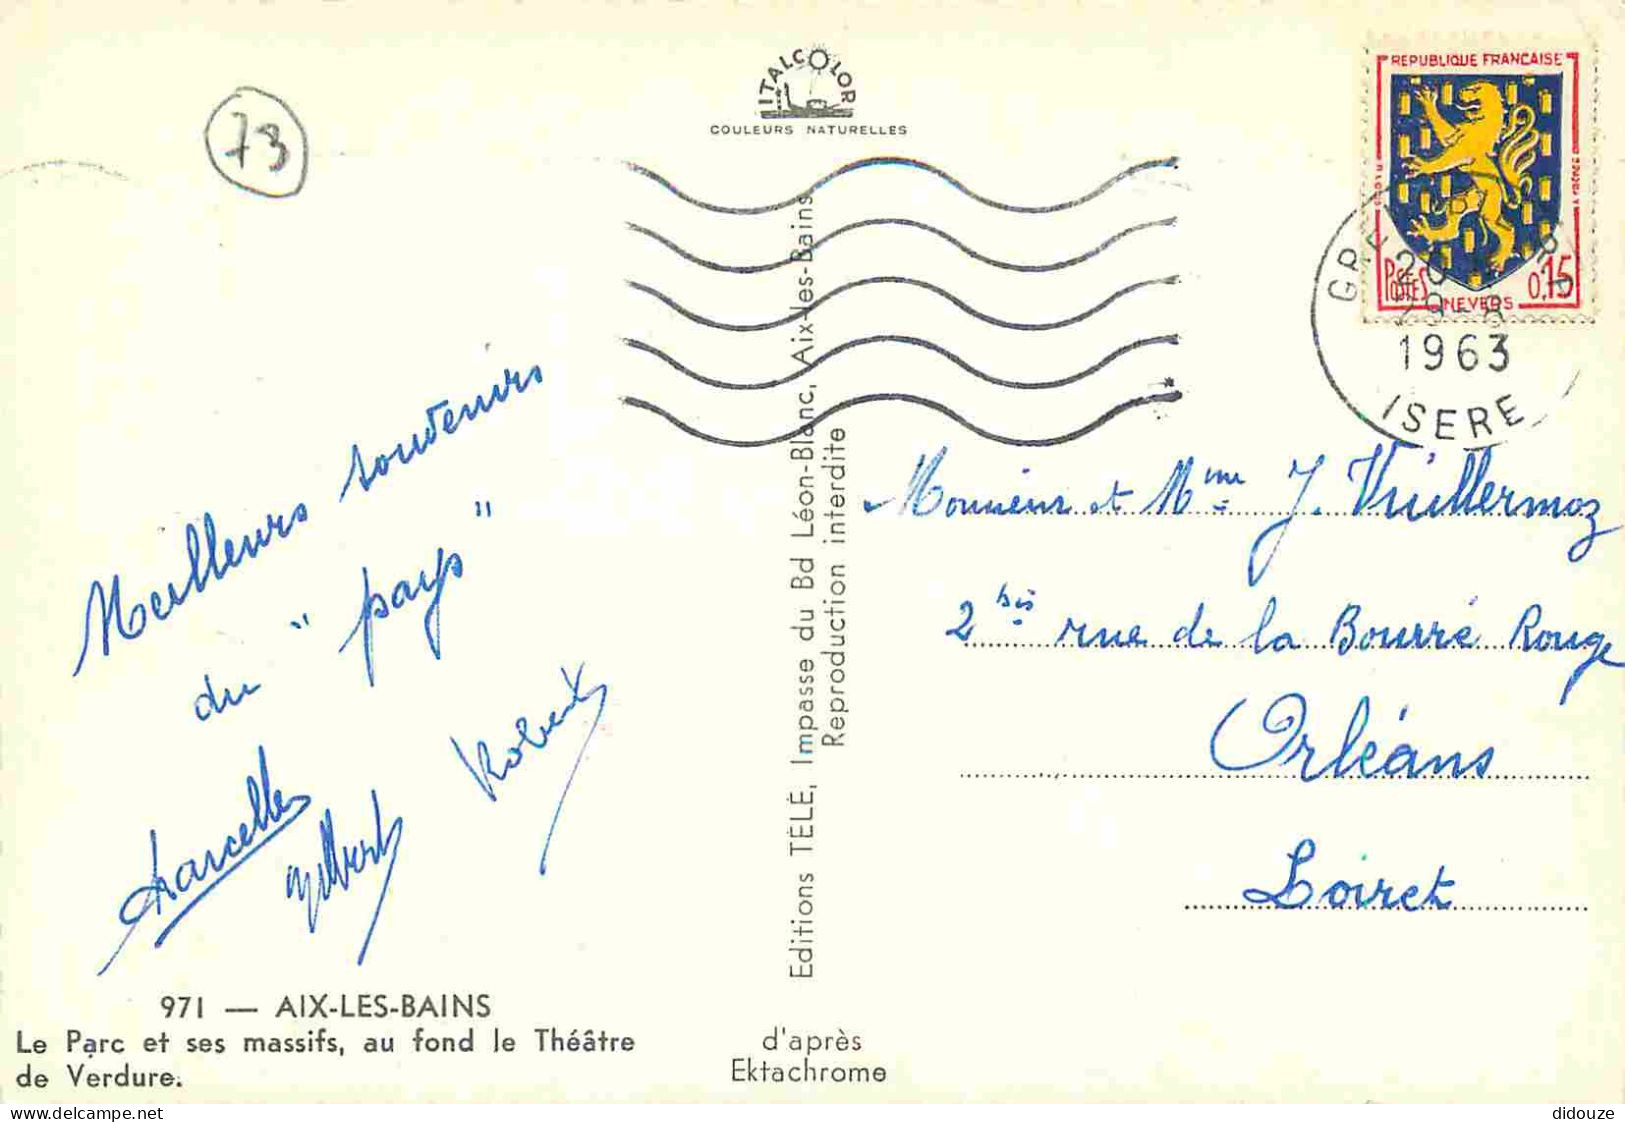 73
ITALCOLOR
COULEURS NATURELLES
REPUBLIQUE FRANÇAISE
POSTES
NEVERS
0,15
20
29-8
1963
ISERE
Meilleurs souvenirs
du "pays"
Marcelle
Gilbert
Robert
Editions TÉLÉ, Impasse du Bd Léon-Blanc, Aix-les-Bains
Reproduction interdite
Monsieur et Mme J. Vuillermoz
2 bis rue de la Bourie Rouge
Orléans
Loiret
971 — AIX-LES-BAINS
Le Parc et ses massifs, au fond le Théâtre
de Verdure.
d'après
Ektachrome
didouze